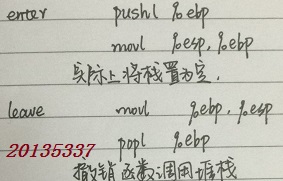 enter pushl %ebp
movl %esp, %ebp
实际上将栈置为空.
leave movl %ebp, %esp
popl %ebp
20135337
撤销函数调用堆栈